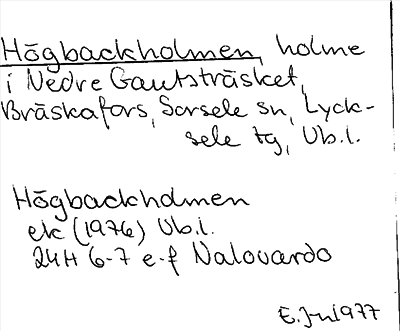 Högbackholmen, holme
i Nedre Gautsträsket,
Bräskafors, Sorsele sn, Lyck-
sele tg, Vb.l.
Högbackholmen
ek (1976) Vb.l.
24H 6-7 e-f Nalovardo
E.Jn 1977